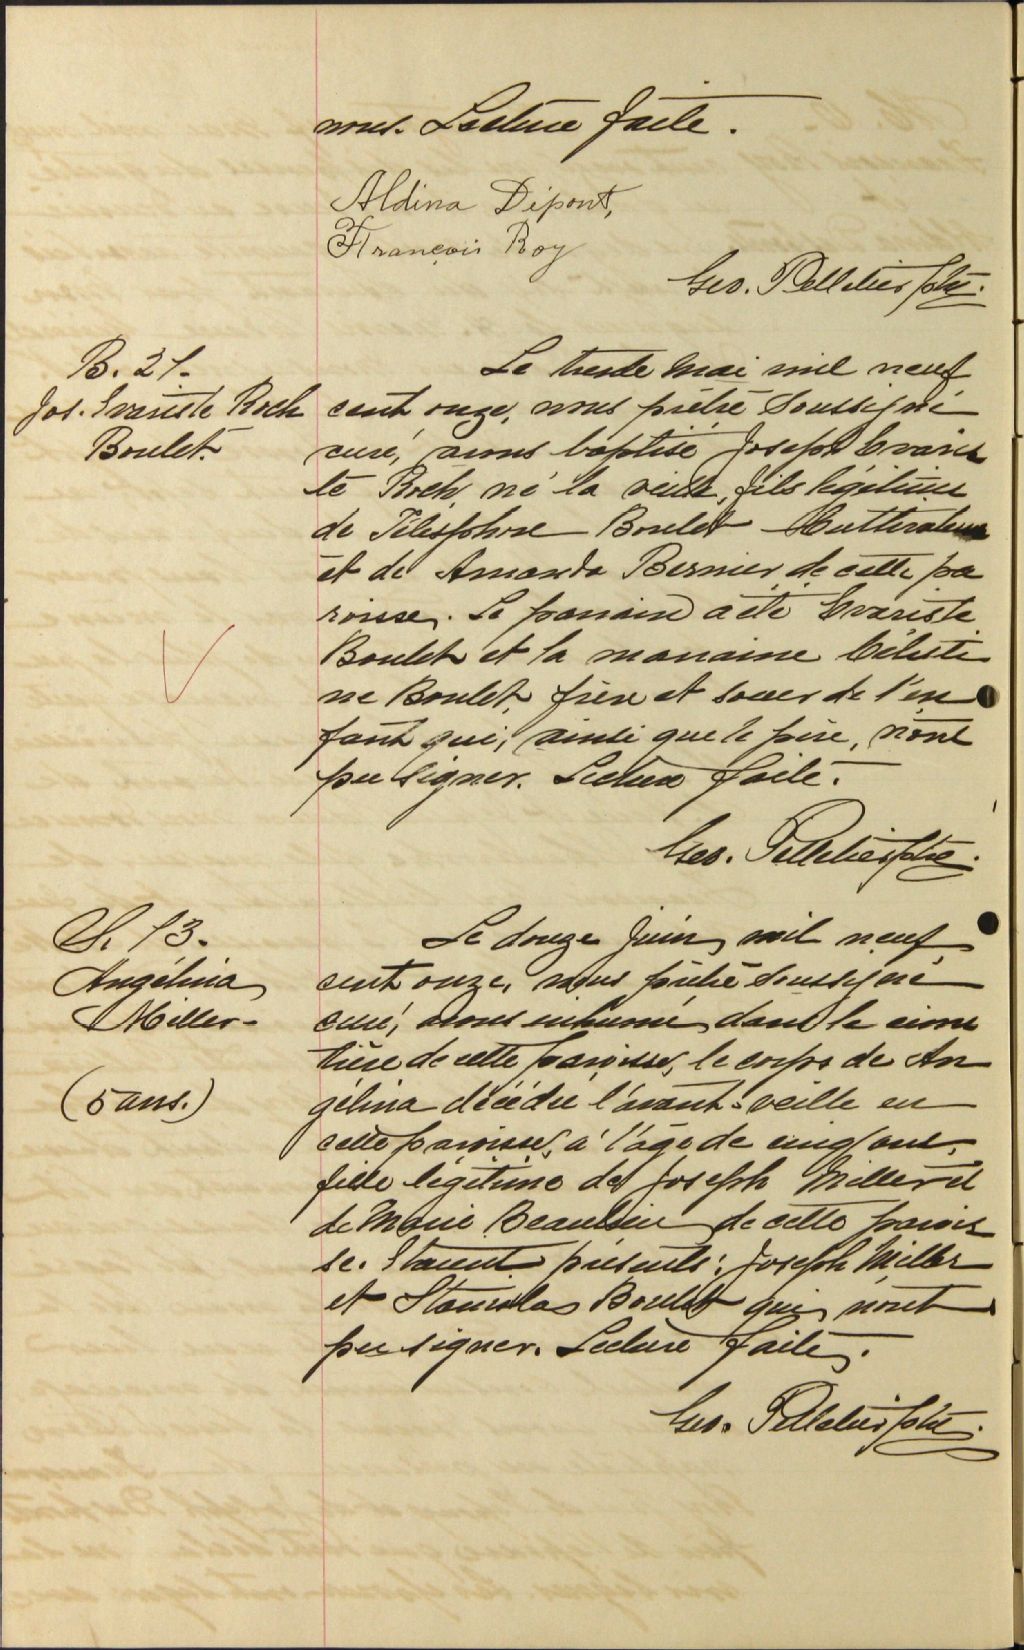 nous. Lecture faite.
Aldina Dépont,
François Roy
Geo. Pelletier ptre.
B. 21.
Jos. Evariste Roch
Boulet.
Le trente mai mil neuf
cent onze, nous prêtre soussigné
curé, avons baptisé Joseph Evaris
te Roch, né la veille, fils légitime
de Télesphore Boulet cultivateur
et de Amanda Bernier de cette pa
roisse. Le parrain a été Evariste
Boulet et la marraine Célesti
ne Boulet, frère et soeur de l'en
fant qui, ainsi que le père, n'ont
pu signer. Lecture faite.
Geo. Pelletier ptre.
S. 13.
Angélina
Miller-
(5 ans.)
Le douze juin mil neuf
cent onze, nous prêtre soussigné
curé, avons inhumé dans le cime
tière de cette paroisse, le corps de An
gélina décédée l'avant-veille en
cette paroisse, à l'âge de cinq ans,
fille légitime de Joseph Miller et
de Marie Beaulieu de cette parois
se. Etaient présents: Joseph Miller
et Stanislas Boulet qui n'ont
pu signer. Lecture faite.
Geo. Pelletier ptre.